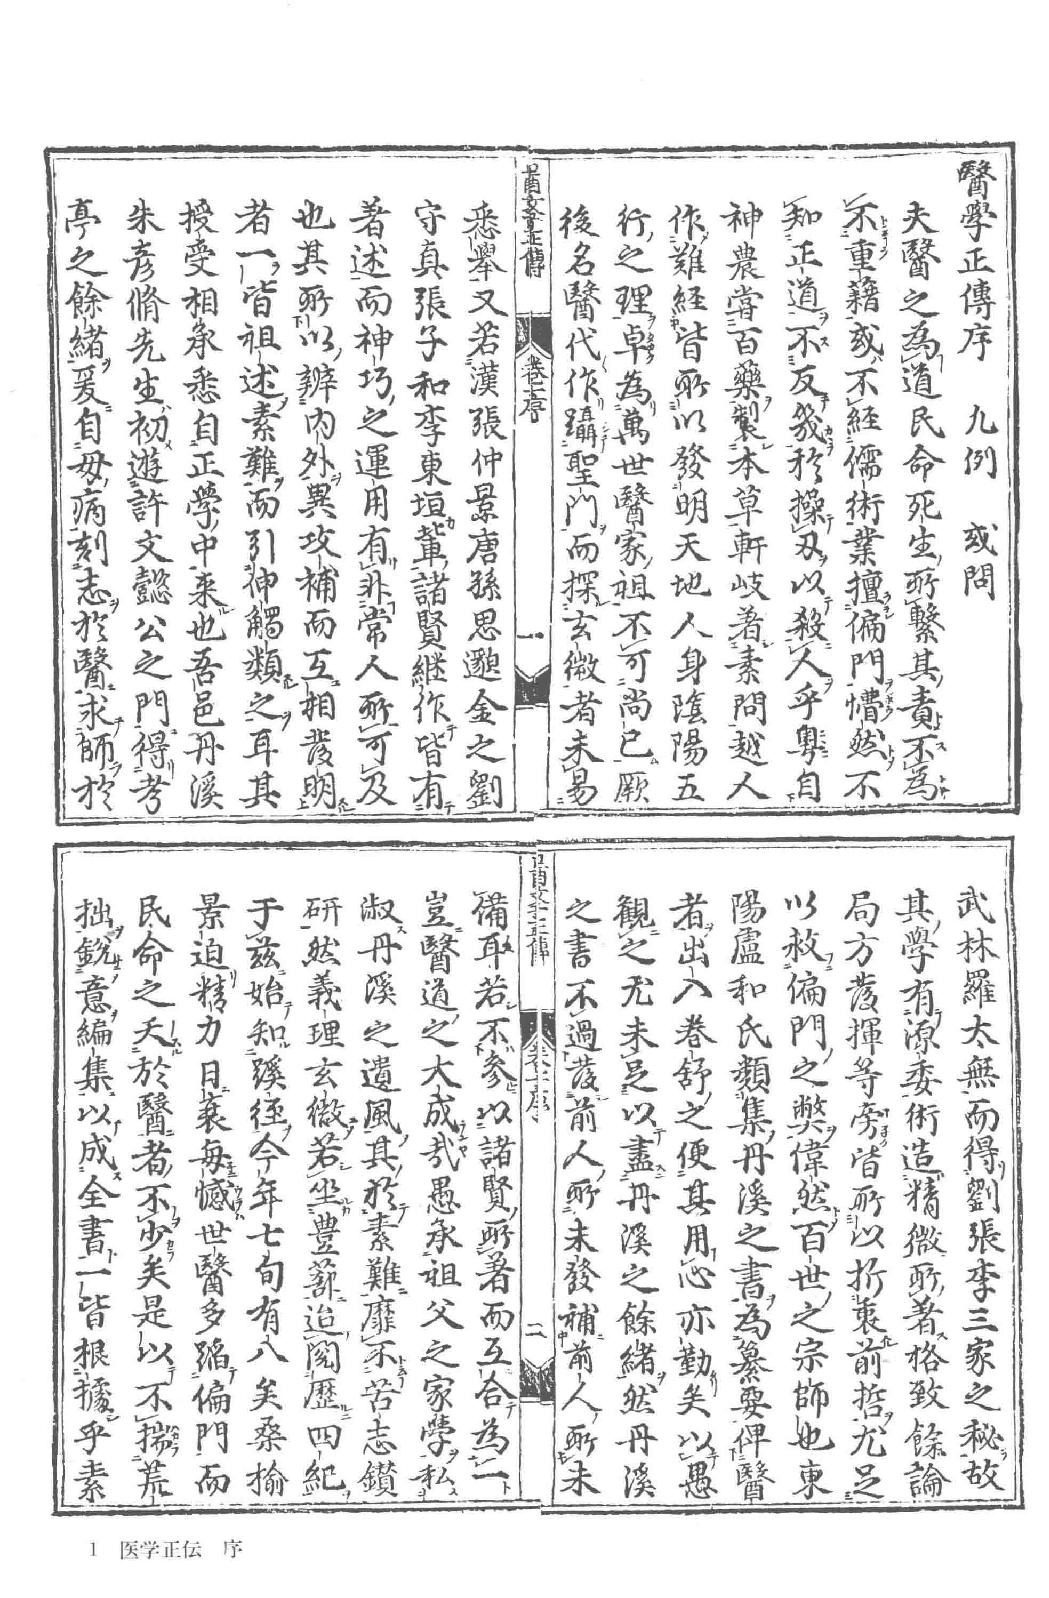 醫學正傳序　九例　或問
夫醫之為道民命死生所繫其責不為
不重藉或不經儒術業擅偏門懵然不
知正道不反幾於操刃以殺人乎粵自
神農嘗百藥製本草軒岐著素問越人
作難經皆所以發明天地人身陰陽五
行之理卓為萬世醫家祖不可尚已厥
後名醫代作躡聖門而探玄微者未易
悉舉又若漢張仲景唐孫思邈金之劉
守真張子和李東垣輩諸賢継作皆有
著述而神巧之運用有非常人所可及
也其所以辨內外異攻補而互相發明
者一皆祖述素難而引伸觸類之耳其
授受相承悉自正學中来也吾邑丹溪
朱彦脩先生初遊許文懿公之門得考
亭之餘緒爰自母病刻志於醫求師於
醫學正傳
卷之序
一
武林羅太無而得劉張李三家之秘故
其學有源委術造精微所著格致餘論
局方發揮等旁皆所以折衷前哲尤足
以救偏門之獘偉然百世之宗師也東
陽盧和氏類集丹溪之書為纂要俾醫
者出入巻舒之便其用心亦勤矣以愚
観之尤未足以盡丹溪之餘緒然丹溪
之書不過發前人所未發補前人所未
備耳若不參以諸賢所著而互合為一
豈醫道之大成㢤愚承祖父之家學私
淑丹溪之遺風其於素難靡不苦志鑽
研然義理玄微若坐豊蔀迨閱歴四紀
于兹始知蹊径今年七旬有八矣桑榆
景迫精力日衰每憾世醫多蹈偏門而
民命之夭於醫者不少矣是以不揣荒
拙銳意編集以成全書一皆根據乎素
醫學正傳
卷之序
二
1　医学正伝　序